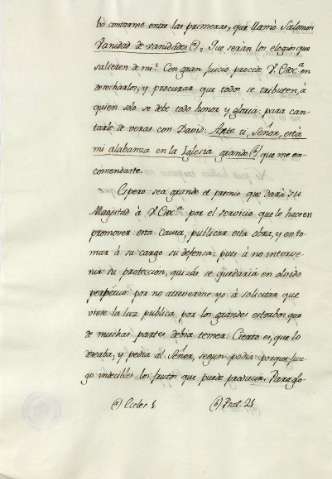 bo conforme entre las primeras, que llamó Salomón
Vanidad de vanidades (a). Que serán los elogios que
salieren de mi? Con gran juicio procede V. Exc.ª en
escucharlos, y procurar que todos se tributen á
quien solo se debe todo honor y gloria; para can-
tarle de veras con David: Ante ti, Señor, está
mi alabanza en la Iglesia grande (b) que me en-
comendaste.
Espero sea grande el premio que dará su
Magestad á V. Exc.ª por el servicio, que le hace en
promover esta Causa, publicar esta obra, y en to-
mar á su cargo su defensa; pues á no interve-
nir su proteccion, quizás se quedaria en olvido
perpetuo por no atreverme yo á solicitar que
viese la luz publica, por los grandes estorbos que
de muchas partes debia temer. Cierto es, que lo
deseaba, y pedia al Señor, segun podia porque juz-
go indecibles los frutos que puede producir. Para glo-
(a) Eccles. 1. (b) Psal. 21.